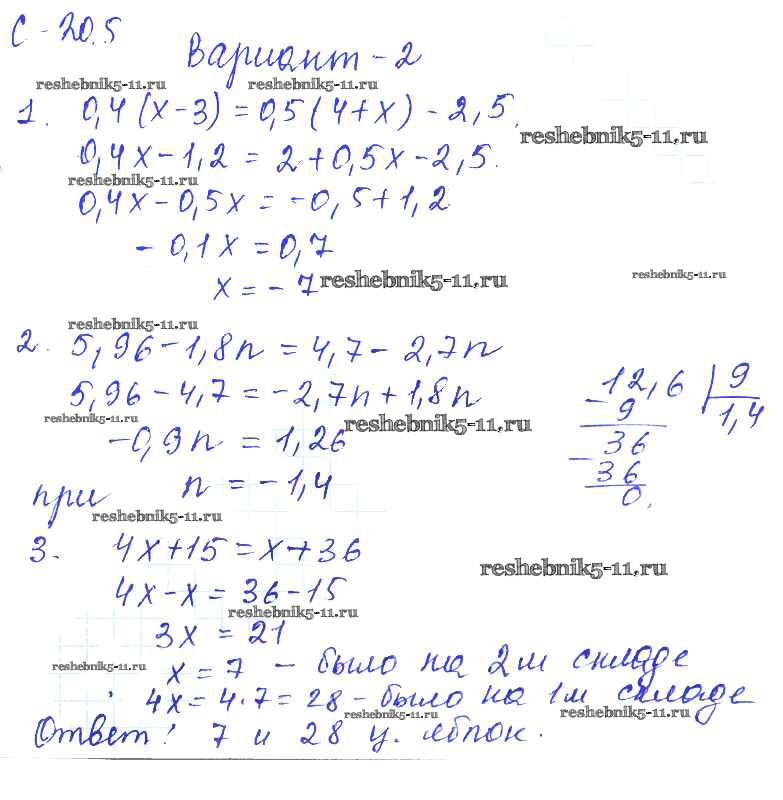 С-20.5
Вариант-2
reshebnik5-11.ru reshebnik5-11.ru
1. 0,4(х-3)=0,5(4+х)-2,5.
reshebnik5-11.ru
0,4х-1,2=2+0,5х-2,5.
reshebnik5-11.ru
0,4х-0,5х=-0,5+1,2
-0,1х=0,7
х=-7
reshebnik5-11.ru reshebnik5-11.ru
reshebnik5-11.ru
2. 5,96-1,8n=4,7-2,7n
5,96-4,7=-2,7n+1,8n
reshebnik5-11.ru reshebnik5-11.ru
-0,9n=1,26
при n=-1,4
12,6 | 9
- 9 1,4
36
- 36
0.
reshebnik5-11.ru
3. 4х+15=х+36
reshebnik5-11.ru
4х-х=36-15
reshebnik5-11.ru
3х=21
reshebnik5-11.ru
х=7 - было на 2м складе
4х=4·7=28-было на 1м складе
reshebnik5-11.ru reshebnik5-11.ru
Ответ: 7 и 28 ц. яблок.